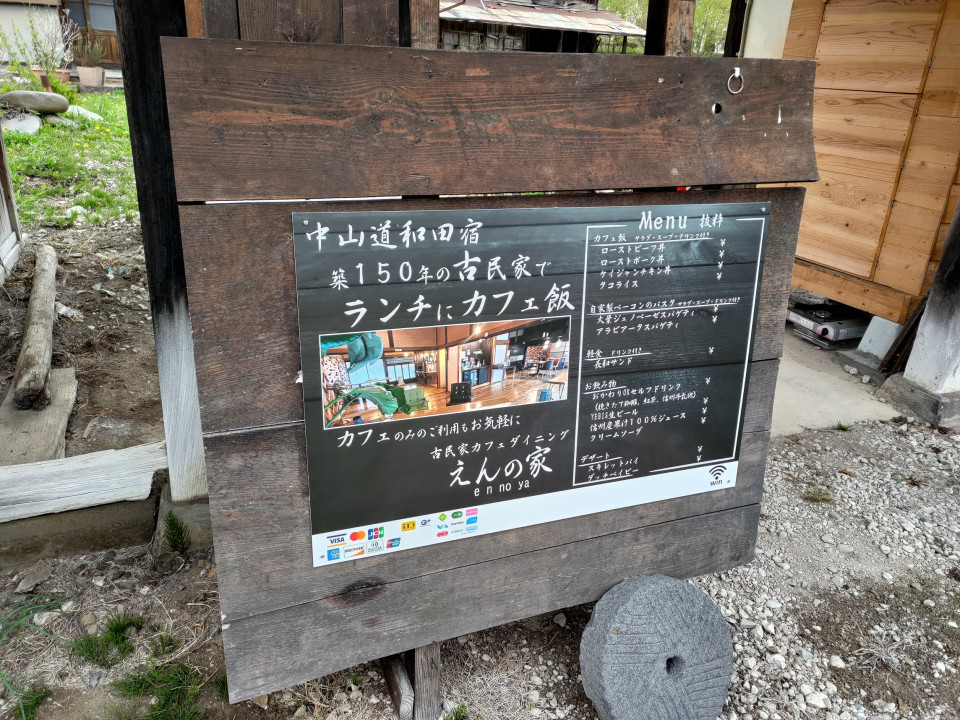 中山道和田宿
築150年の古民家で
ランチにカフェ飯
カフェのみのご利用もお気軽に
古民家カフェダイニング
えんの家
en no ya
VISA
JCB
DISCOVER
Menu 抜粋
カフェ飯 サラダ・スープ・ドリンク付き
ローストビーフ丼 ¥
ローストポーク丼 ¥
ケイジャンチキン丼 ¥
タコライス
自家製ベーコンのパスタ サラダ・スープ・ドリンク付き
大葉ジェノベーゼスパゲティ ¥
アラビアータスパゲティ ¥
軽食 ドリンク付き
長和サンド ¥
お飲み物
おかわりOKセルフドリンク ¥
(焼きたて珈琲、紅茶、信州牛乳他)
YEBIS生ビール ¥
信州産果汁100%ジュース ¥
クリームソーダ ¥
デザート
スキレットパイ ¥
ダッチベイビー ¥
wifi